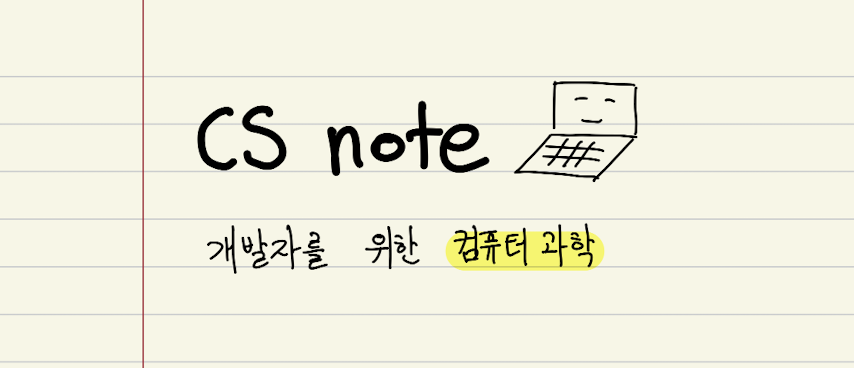 CS note
개발자를 위한 컴퓨터 과학